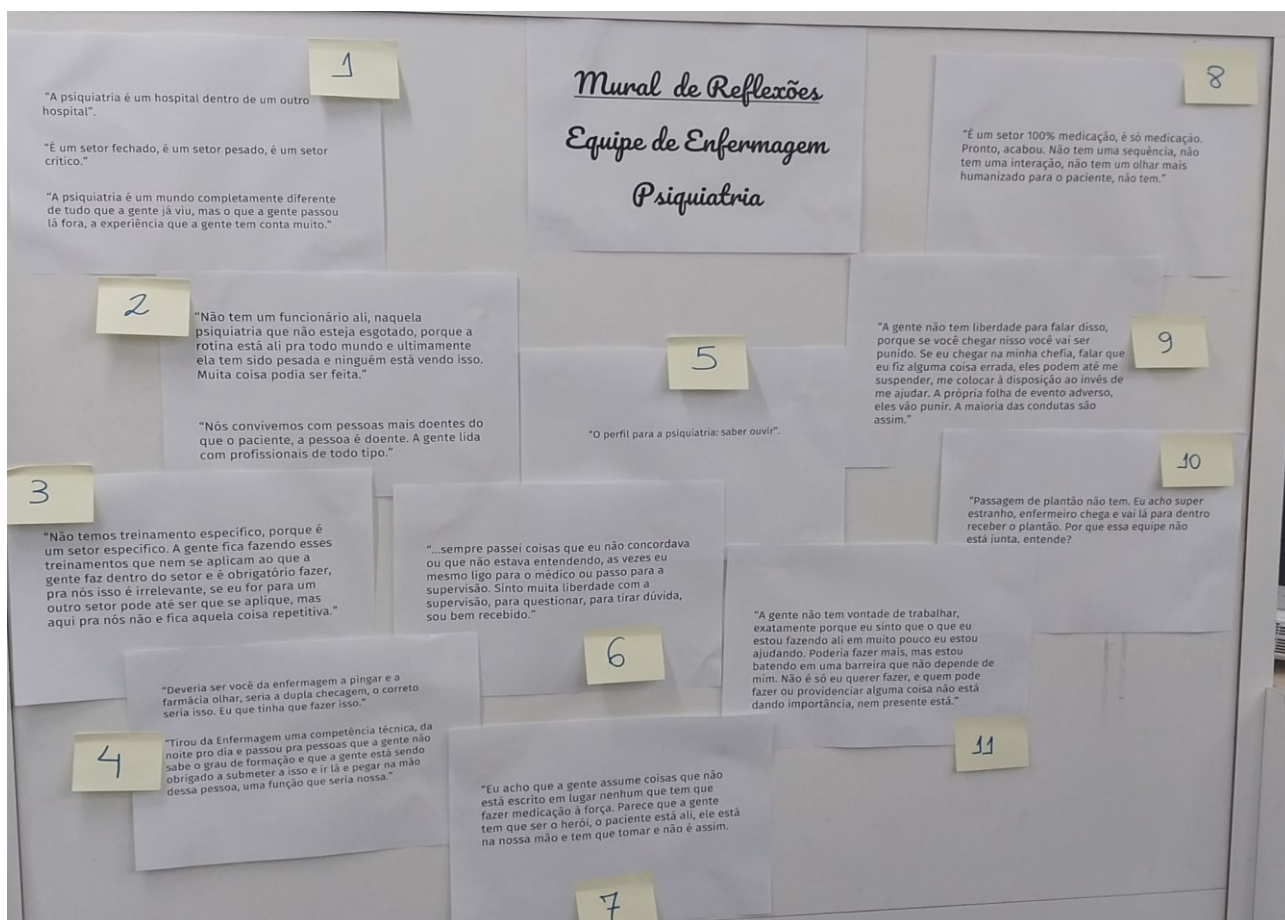 Mural de Reflexões
Equipe de Enfermagem
Psiquiatria
1
"A psiquiatria é um hospital dentro de um outro
hospital".
"É um setor fechado, é um setor pesado, é um setor
crítico."
"A psiquiatria é um mundo completamente diferente
de tudo que a gente já viu, mas o que a gente passou
lá fora, a experiência que a gente tem conta muito."
2
"Não tem um funcionário ali, naquela
psiquiatria que não esteja esgotado, porque a
rotina está ali pra todo mundo e ultimamente
ela tem sido pesada e ninguém está vendo isso.
Muita coisa podia ser feita."
"Nós convivemos com pessoas mais doentes do
que o paciente, a pessoa é doente. A gente lida
com profissionais de todo tipo."
3
"Não temos treinamento específico, porque é
um setor específico. A gente fica fazendo esses
treinamentos que nem se aplicam ao que a
gente faz dentro do setor e é obrigatório fazer,
pra nós isso é irrelevante, se eu for para um
outro setor pode até ser que se aplique, mas
aqui pra nós não e fica aquela coisa repetitiva."
4
"Deveria ser você da enfermagem a pingar e a
farmácia olhar, seria a dupla checagem, o correto
seria isso. Eu que tinha que fazer isso."
"Tirou da Enfermagem uma competência técnica, da
noite pro dia e passou pra pessoas que a gente não
sabe o grau de formação e que a gente está sendo
obrigado a submeter a isso e ir lá e pegar na mão
dessa pessoa, uma função que seria nossa."
5
"O perfil para a psiquiatria: saber ouvir".
"...sempre passei coisas que eu não concordava
ou que não estava entendendo, as vezes eu
mesmo ligo para o médico ou passo para a
supervisão. Sinto muita liberdade com a
supervisão, para questionar, para tirar dúvida,
sou bem recebido."
6
"Eu acho que a gente assume coisas que não
está escrito em lugar nenhum que tem que
fazer medicação à força. Parece que a gente
tem que ser o herói, o paciente está ali, ele está
na nossa mão e tem que tomar e não é assim.
7
8
"É um setor 100% medicação, é só medicação.
Pronto, acabou. Não tem uma sequência, não
tem uma interação, não tem um olhar mais
humanizado para o paciente, não tem."
9
"A gente não tem liberdade para falar disso,
porque se você chegar nisso você vai ser
punido. Se eu chegar na minha chefia, falar que
eu fiz alguma coisa errada, eles podem até me
suspender, me colocar à disposição ao invés de
me ajudar. A própria folha de evento adverso,
eles vão punir. A maioria das condutas são
assim."
10
"Passagem de plantão não tem. Eu acho super
estranho, enfermeiro chega e vai lá para dentro
receber o plantão. Por que essa equipe não
está junta, entende?
"A gente não tem vontade de trabalhar,
exatamente porque eu sinto que o que eu
estou fazendo ali em muito pouco eu estou
ajudando. Poderia fazer mais, mas estou
batendo em uma barreira que não depende de
mim. Não é só eu querer fazer, e quem pode
fazer ou providenciar alguma coisa não está
dando importância, nem presente está."
11